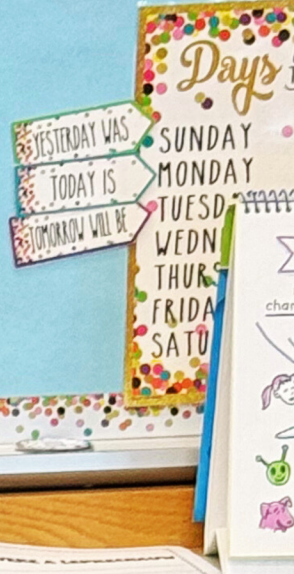 Days
YESTERDAY WAS
TODAY IS
TOMORROW WILL BE
SUNDAY
MONDAY
TUESD
WEDN
THUR
FRIDA
SATU
char